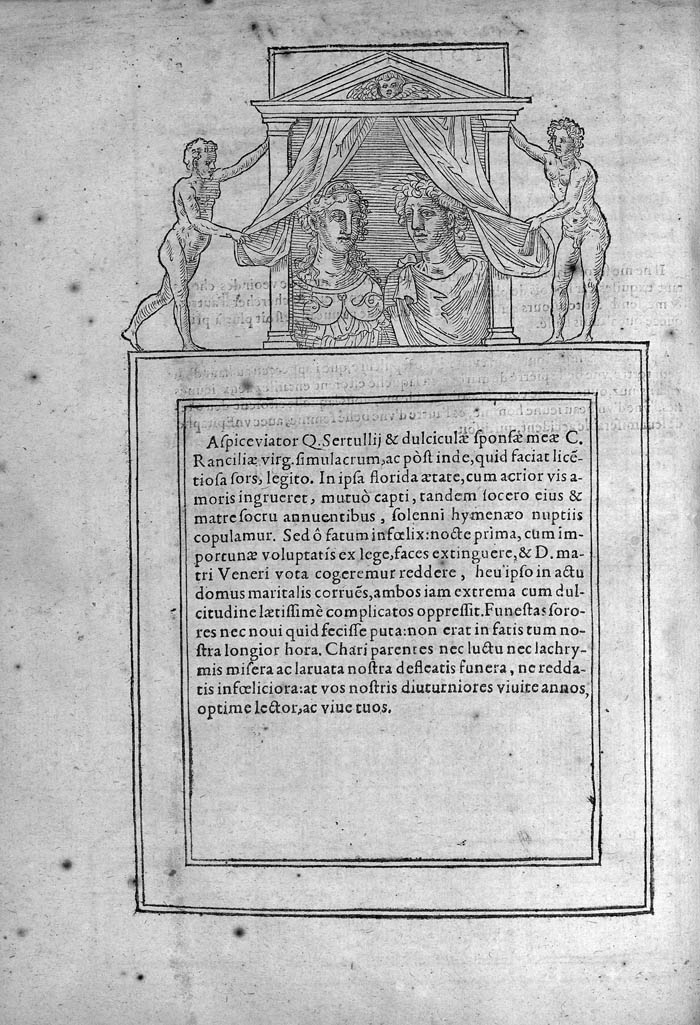 Aſpice viator Q. Sertullij & dulciculæ ſponſæ meæ C.
Ranciliæ virg. ſimulacrum, ac pòſt inde, quid faciat licē-
tioſa ſors, legito. In ipſa florida ætate, cum acrior vis a-
moris ingrueret, mutuò capti, tandem ſocero eius &
matre ſocru annuentibus, ſolenni hymenæo nuptiis
copulamur. Sed ô fatum infœlix: nocte prima, cum im-
portunæ voluptatis ex lege, faces extinguere, & D. ma-
tri Veneri vota cogeremur reddere, heu ipſo in actu
domus maritalis corruēs, ambos iam extrema cum dul-
citudine lætiſſimè complicatos oppreſſit. Funeſtas ſoro-
res nec noui quid feciſſe puta: non erat in fatis tum no-
ſtra longior hora. Chari parentes nec luctu nec lachry-
mis miſera ac laruata noſtra defleatis funera, ne redda-
tis infœliciora: at vos noſtris diuturniores viuite annos,
optime lector, ac viue tuos.